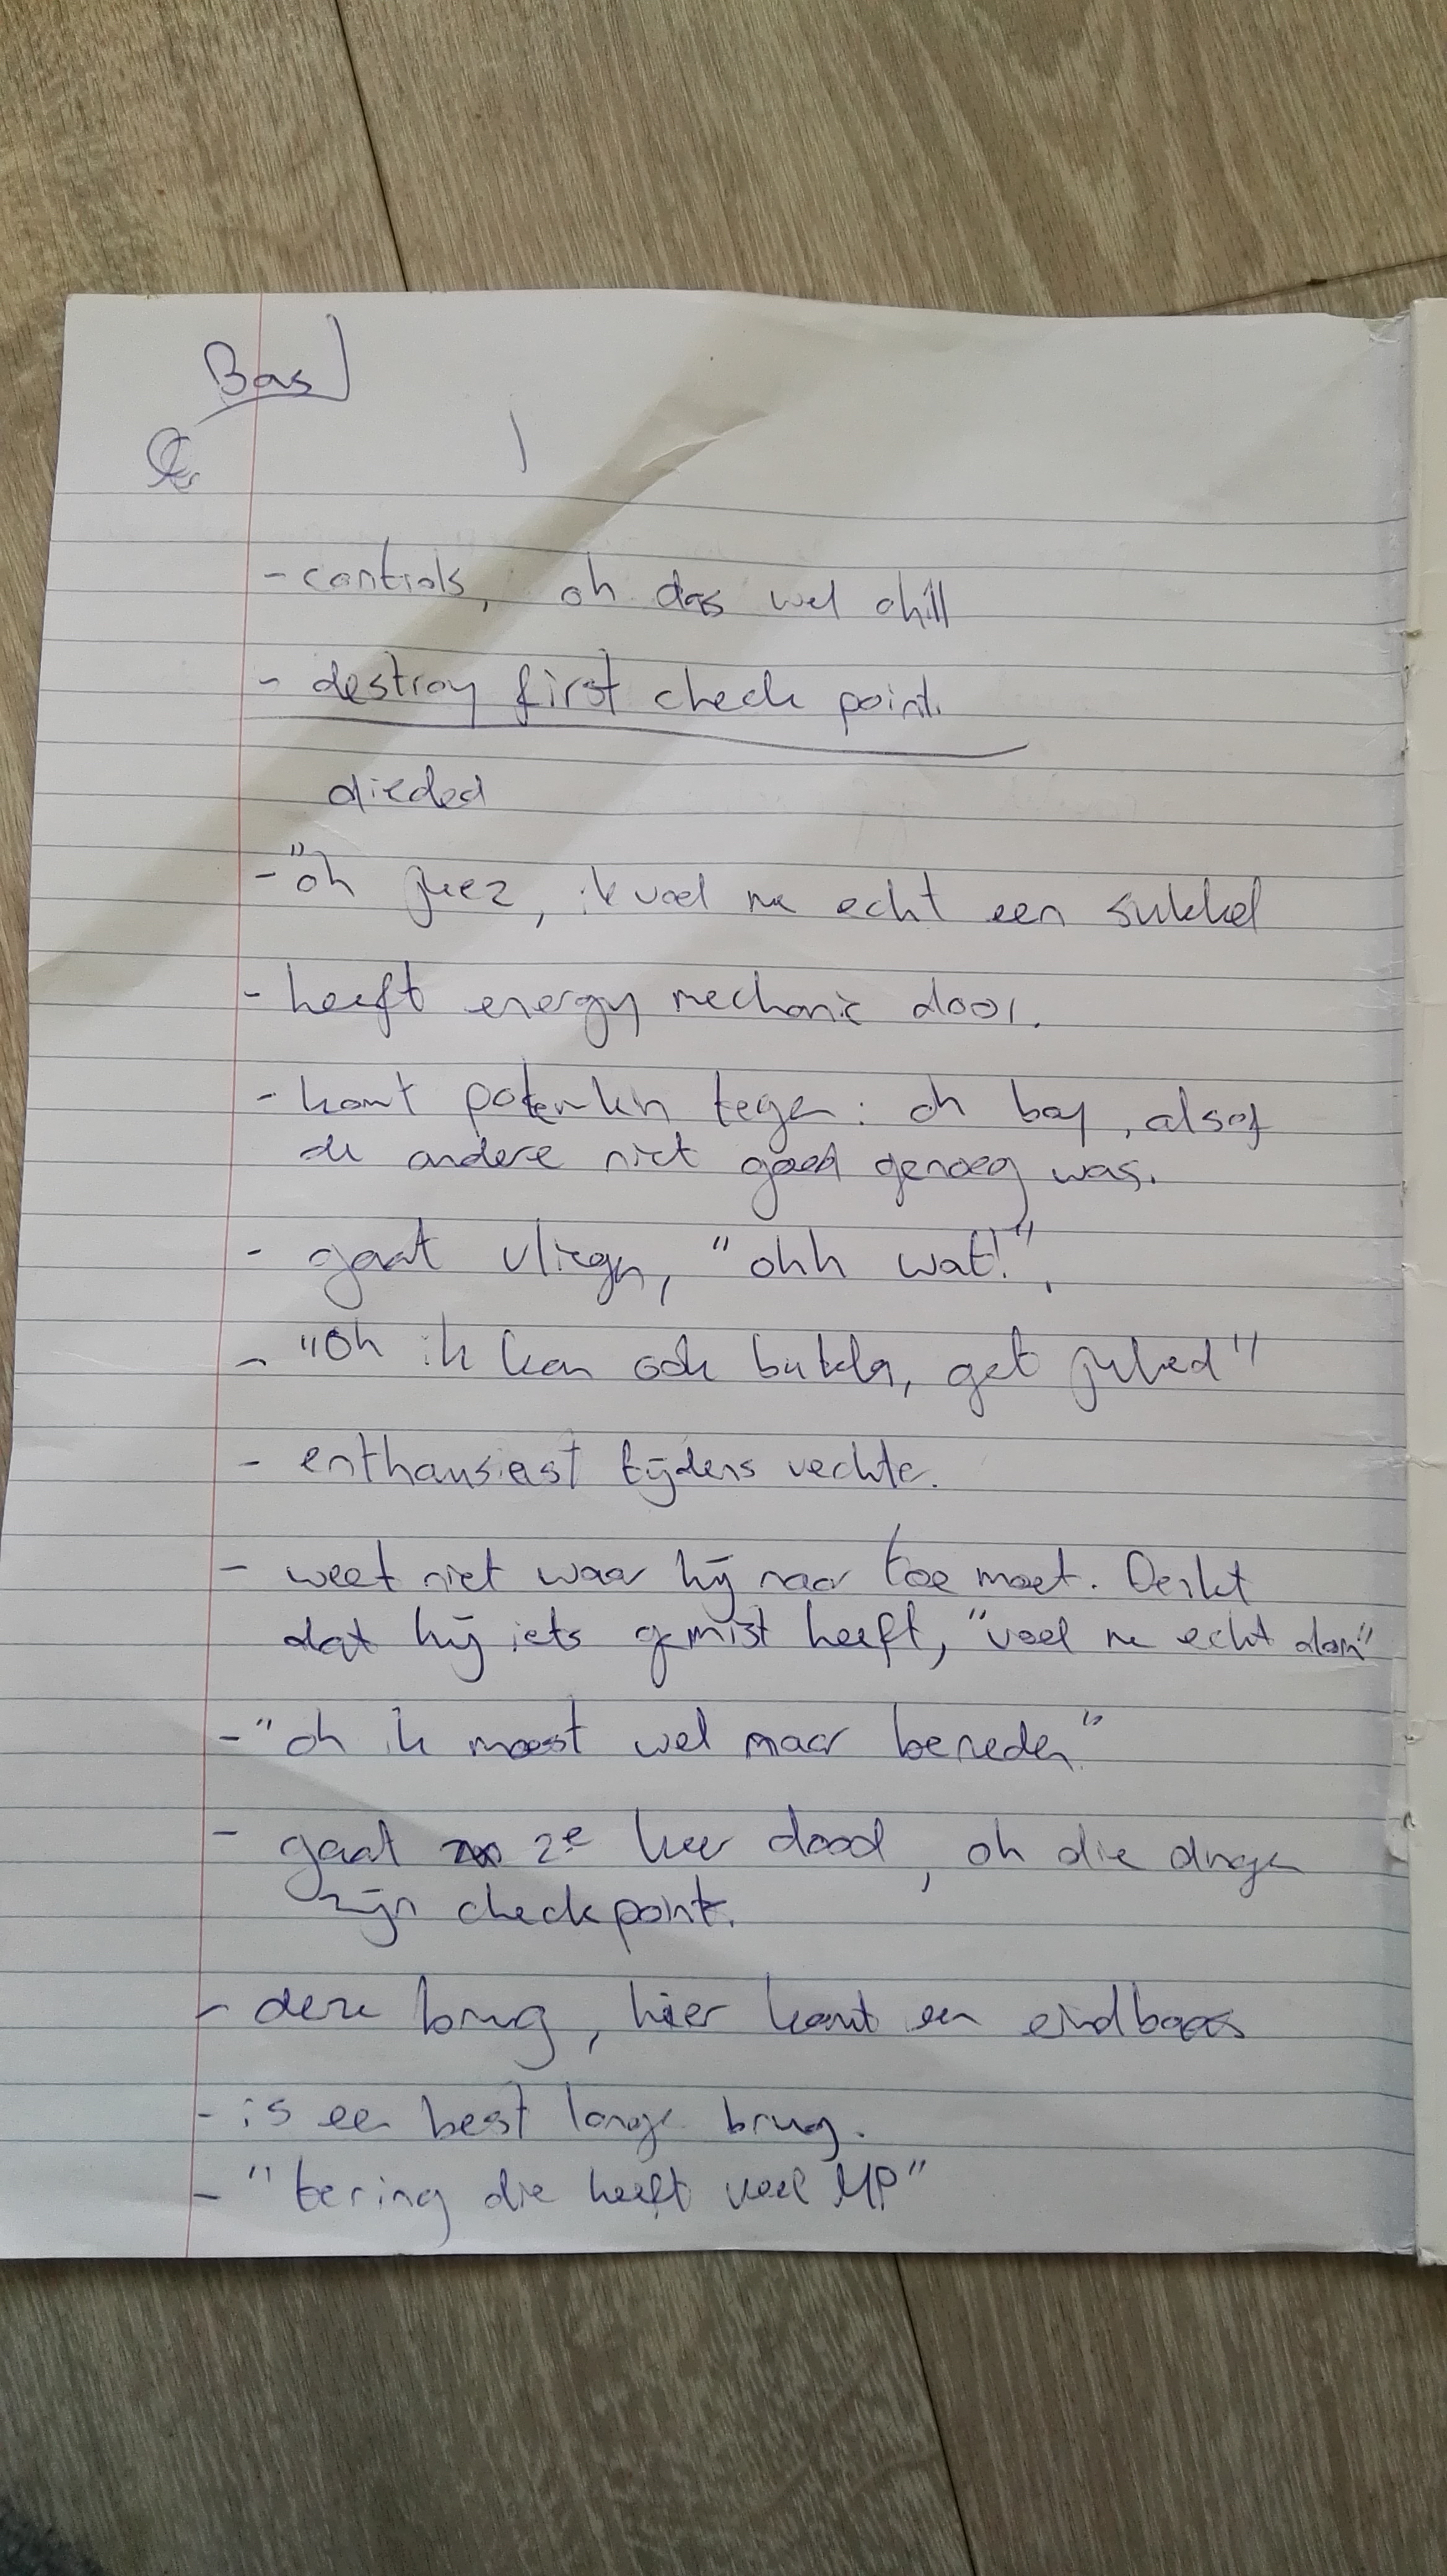 Bas
- controls, oh das wel chill
- destroy first check point.
dieded
- "oh jeez, ik voel me echt een sukkel
- heeft energy mechanic door.
- komt potemkin tegen: oh boy, alsof
de andere niet goed genoeg was.
- gaat vliegn, "ohh wat!",
- "oh ik kan ook bukkn, get juked"
- enthousiast tijdens vechte.
- weet niet waar hij naar toe moet. Denkt
dat hij iets gemist heeft, "voel me echt dom"
- "oh ik moest wel naar beneden"
- gaat 2e keer dood, oh die dinge
zijn checkpoint.
- deze brug, hier komt een eindbaas
- is een best lange brug.
- "tering die heeft veel HP"